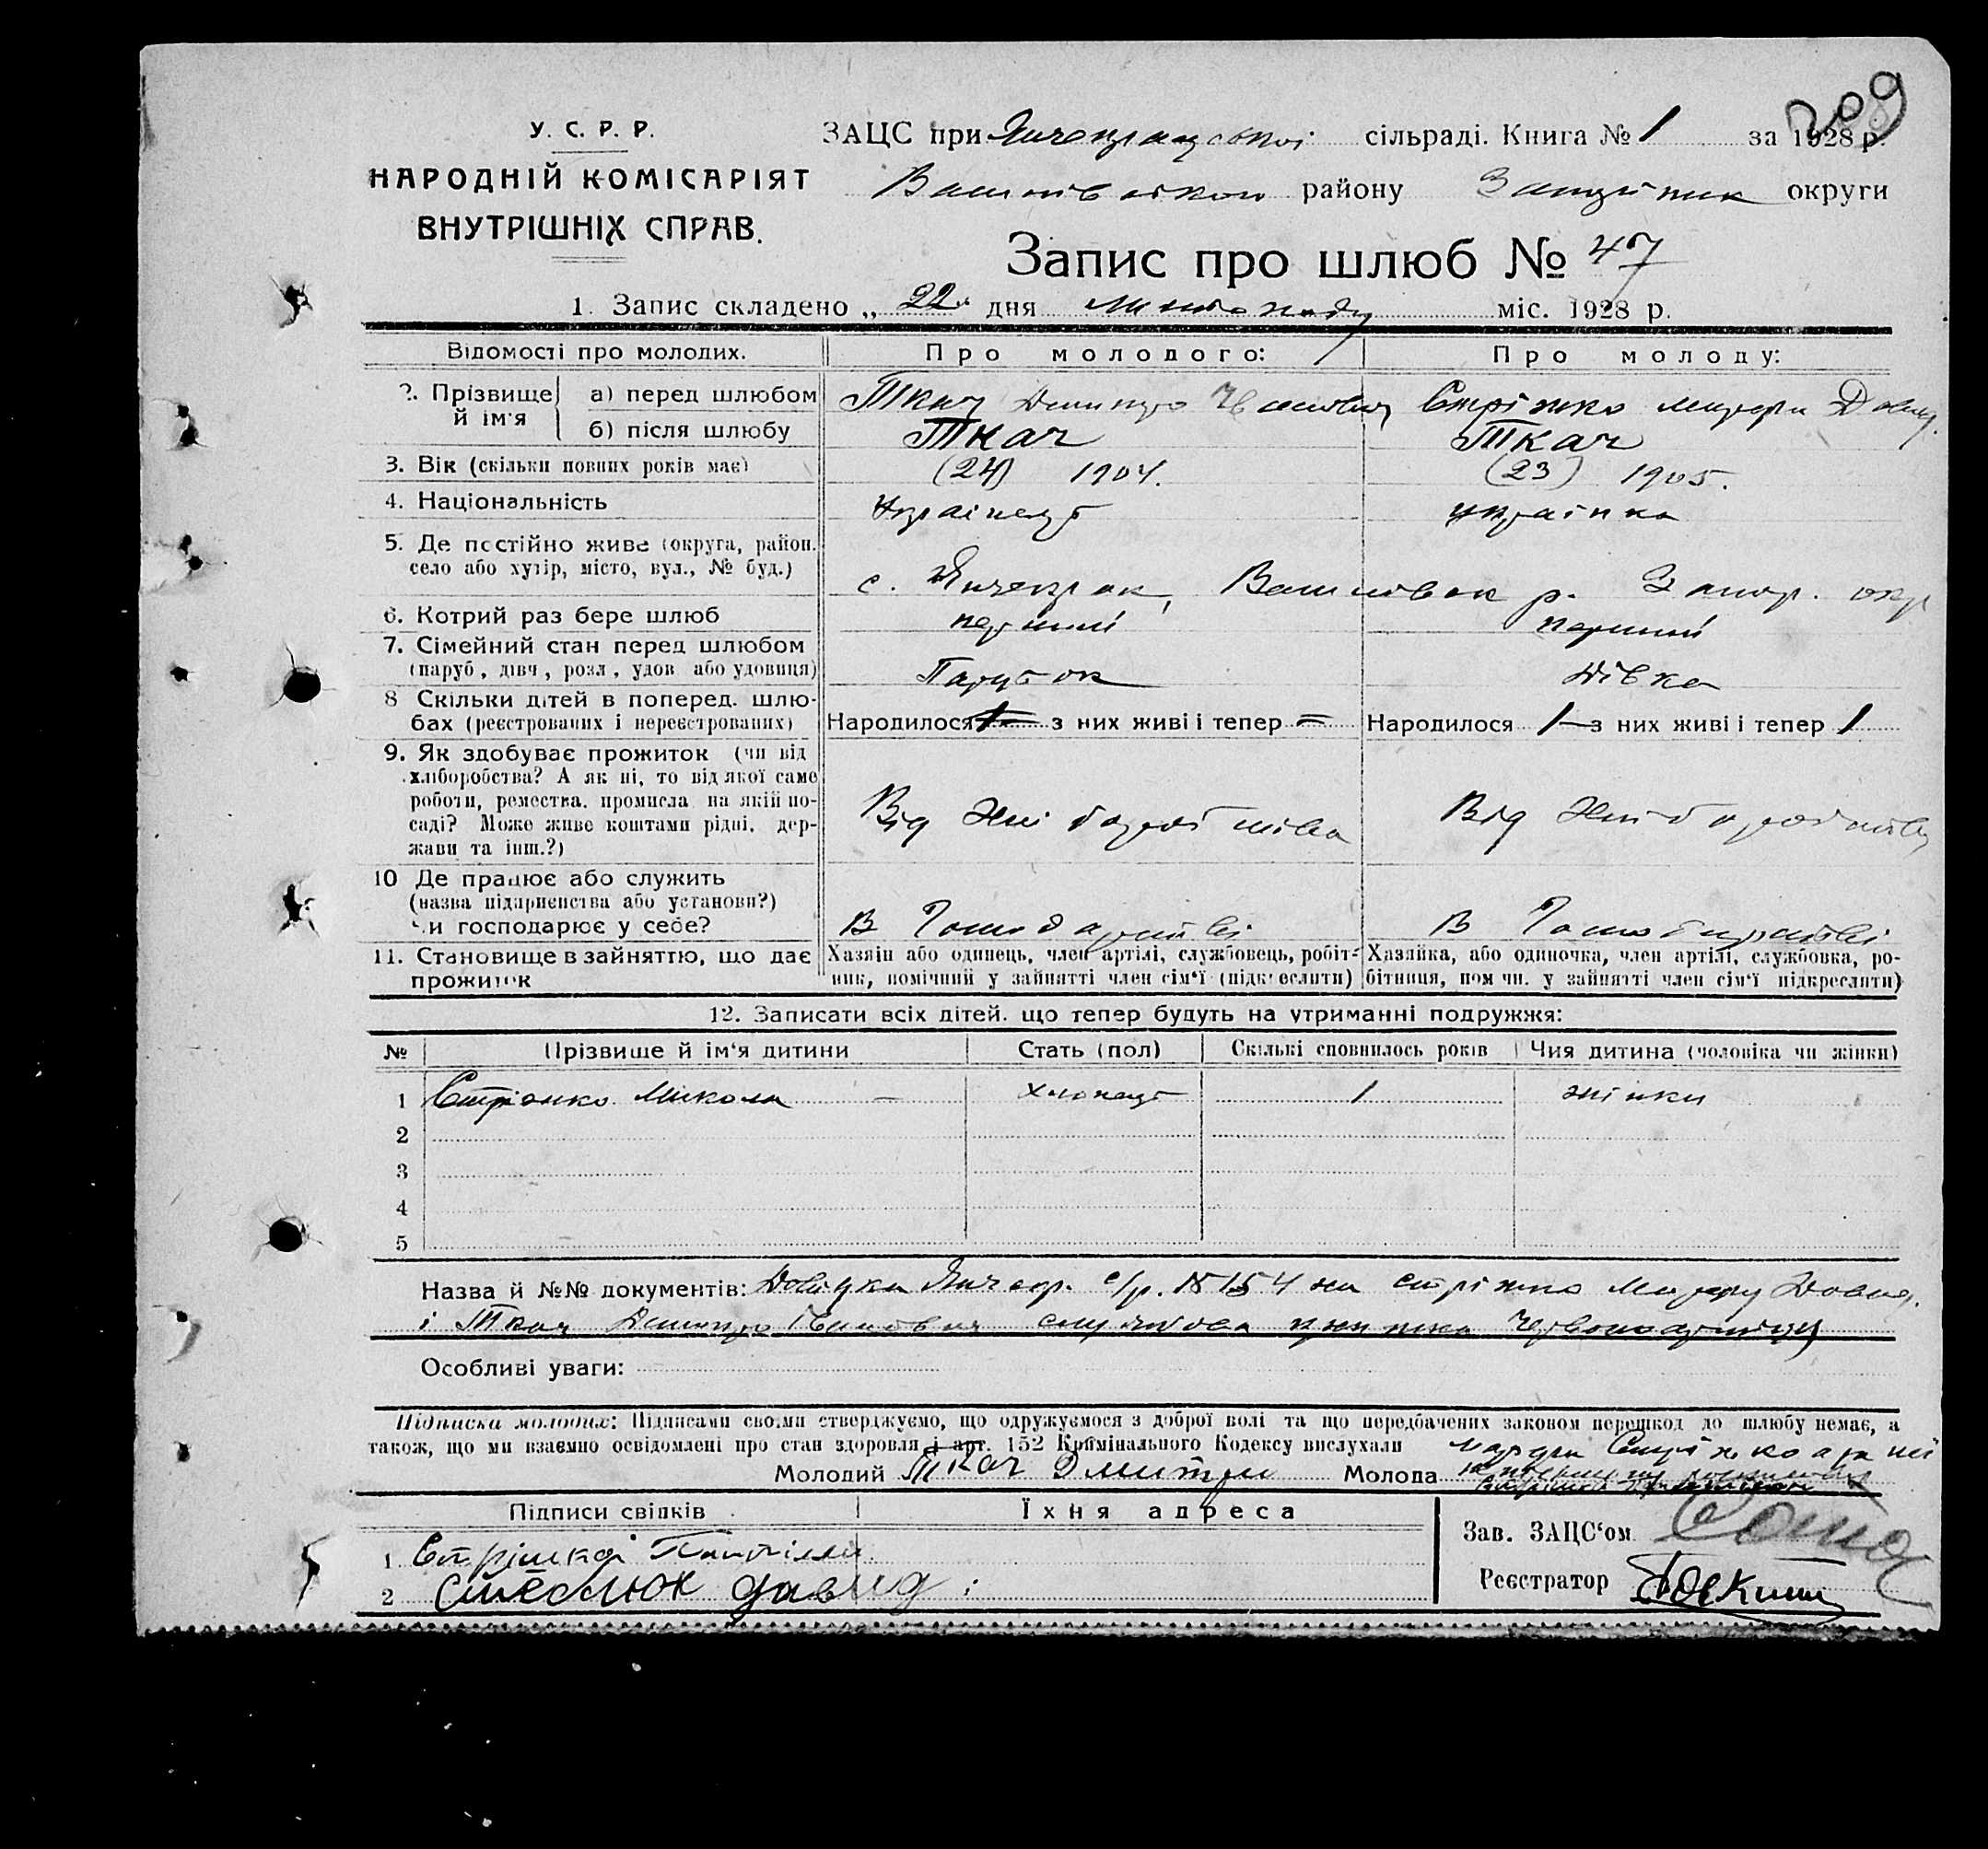 209
У. С. Р. Р.
НАРОДНІЙ КОМІСАРІЯТ
ВНУТРІШНІХ СПРАВ.
ЗАЦС при Янчекрацької сільраді. Книга № 1 за 1928 р.
району округи
Запис про шлюб № 47
1. Запис складено „ 22 " дня листопаду міс. 1928 р.
Відомості про молодих. Про молодого: Про молоду:
2. Прізвище й ім'я а) перед шлюбом Ткач Дмитро Іванович Стріжко Давид.
б) після шлюбу Ткач Ткач
3. Вік (скільки повних років має) (24) 1904. (23) 1905.
4. Національність Українець українка
5. Де постійно живе (округа, район.
село або хутір, місто, вул., № буд.) с. Янчекрак, р. Запор. окр
6. Котрий раз бере шлюб перший перший
7. Сімейний стан перед шлюбом
(паруб, дівч, розл, удов або удовиця) Парубок Дівка
8 Скільки дітей в поперед. шлю-
бах (реєстрованих і нереєстрованих) Народилося з них живі і тепер = Народилося 1 – з них живі і тепер 1
9. Як здобуває прожиток (чи від
хліборобства? А як ні, то від якої саме
роботи, ремества. промисла на якій по-
саді? Може живе коштами рідні. дер-
жави та інш.?) Від Хліборобства Від Хліборобства
10 Де працює або служить
(назва підприємства або установи?)
чи господарює у себе? В Господарстві В Господарстві
11. Становище в зайняттю, що дає
прожиток
Хазяїн або одинець, член артілі, службовець, робіт-
ник, помічний у зайнятті член сім'ї (підкреслити)
Хазяйка, або одиночка, член артілі, службовка, ро-
бітниця, пом чн. у зайнятті член сім'ї підкреслити)
12. Записати всіх дітей. що тепер будуть на утриманні подружжя:
№ Прізвище й ім'я дитини Стать (пол) Скількі сповнилось років Чия дитина (чоловіка чи жінки)
1 Стріжко Микола – хлопець 1 жінки
2
3
4
5
Назва й №№ документів: Довідка Янчекр. с/р. на Стріжко Давид.
і Ткач Дмитро Іванович книжка червоноармійця
Особливі уваги:
Підписка молодих: Підписами своїми стверджуємо, що одружуємося з доброї волі та що передбачених законом перешкод до шлюбу немає, а
також, що ми взаємно освідомлені про стан здоровля і арт. 152 Кримінального Кодексу вислухали
Молодий Ткач Дмитро Молода Стріжко а за неї
Підписи свідків Їхня адреса
Зав. ЗАЦС'ом
1
2 давид
Реєстратор